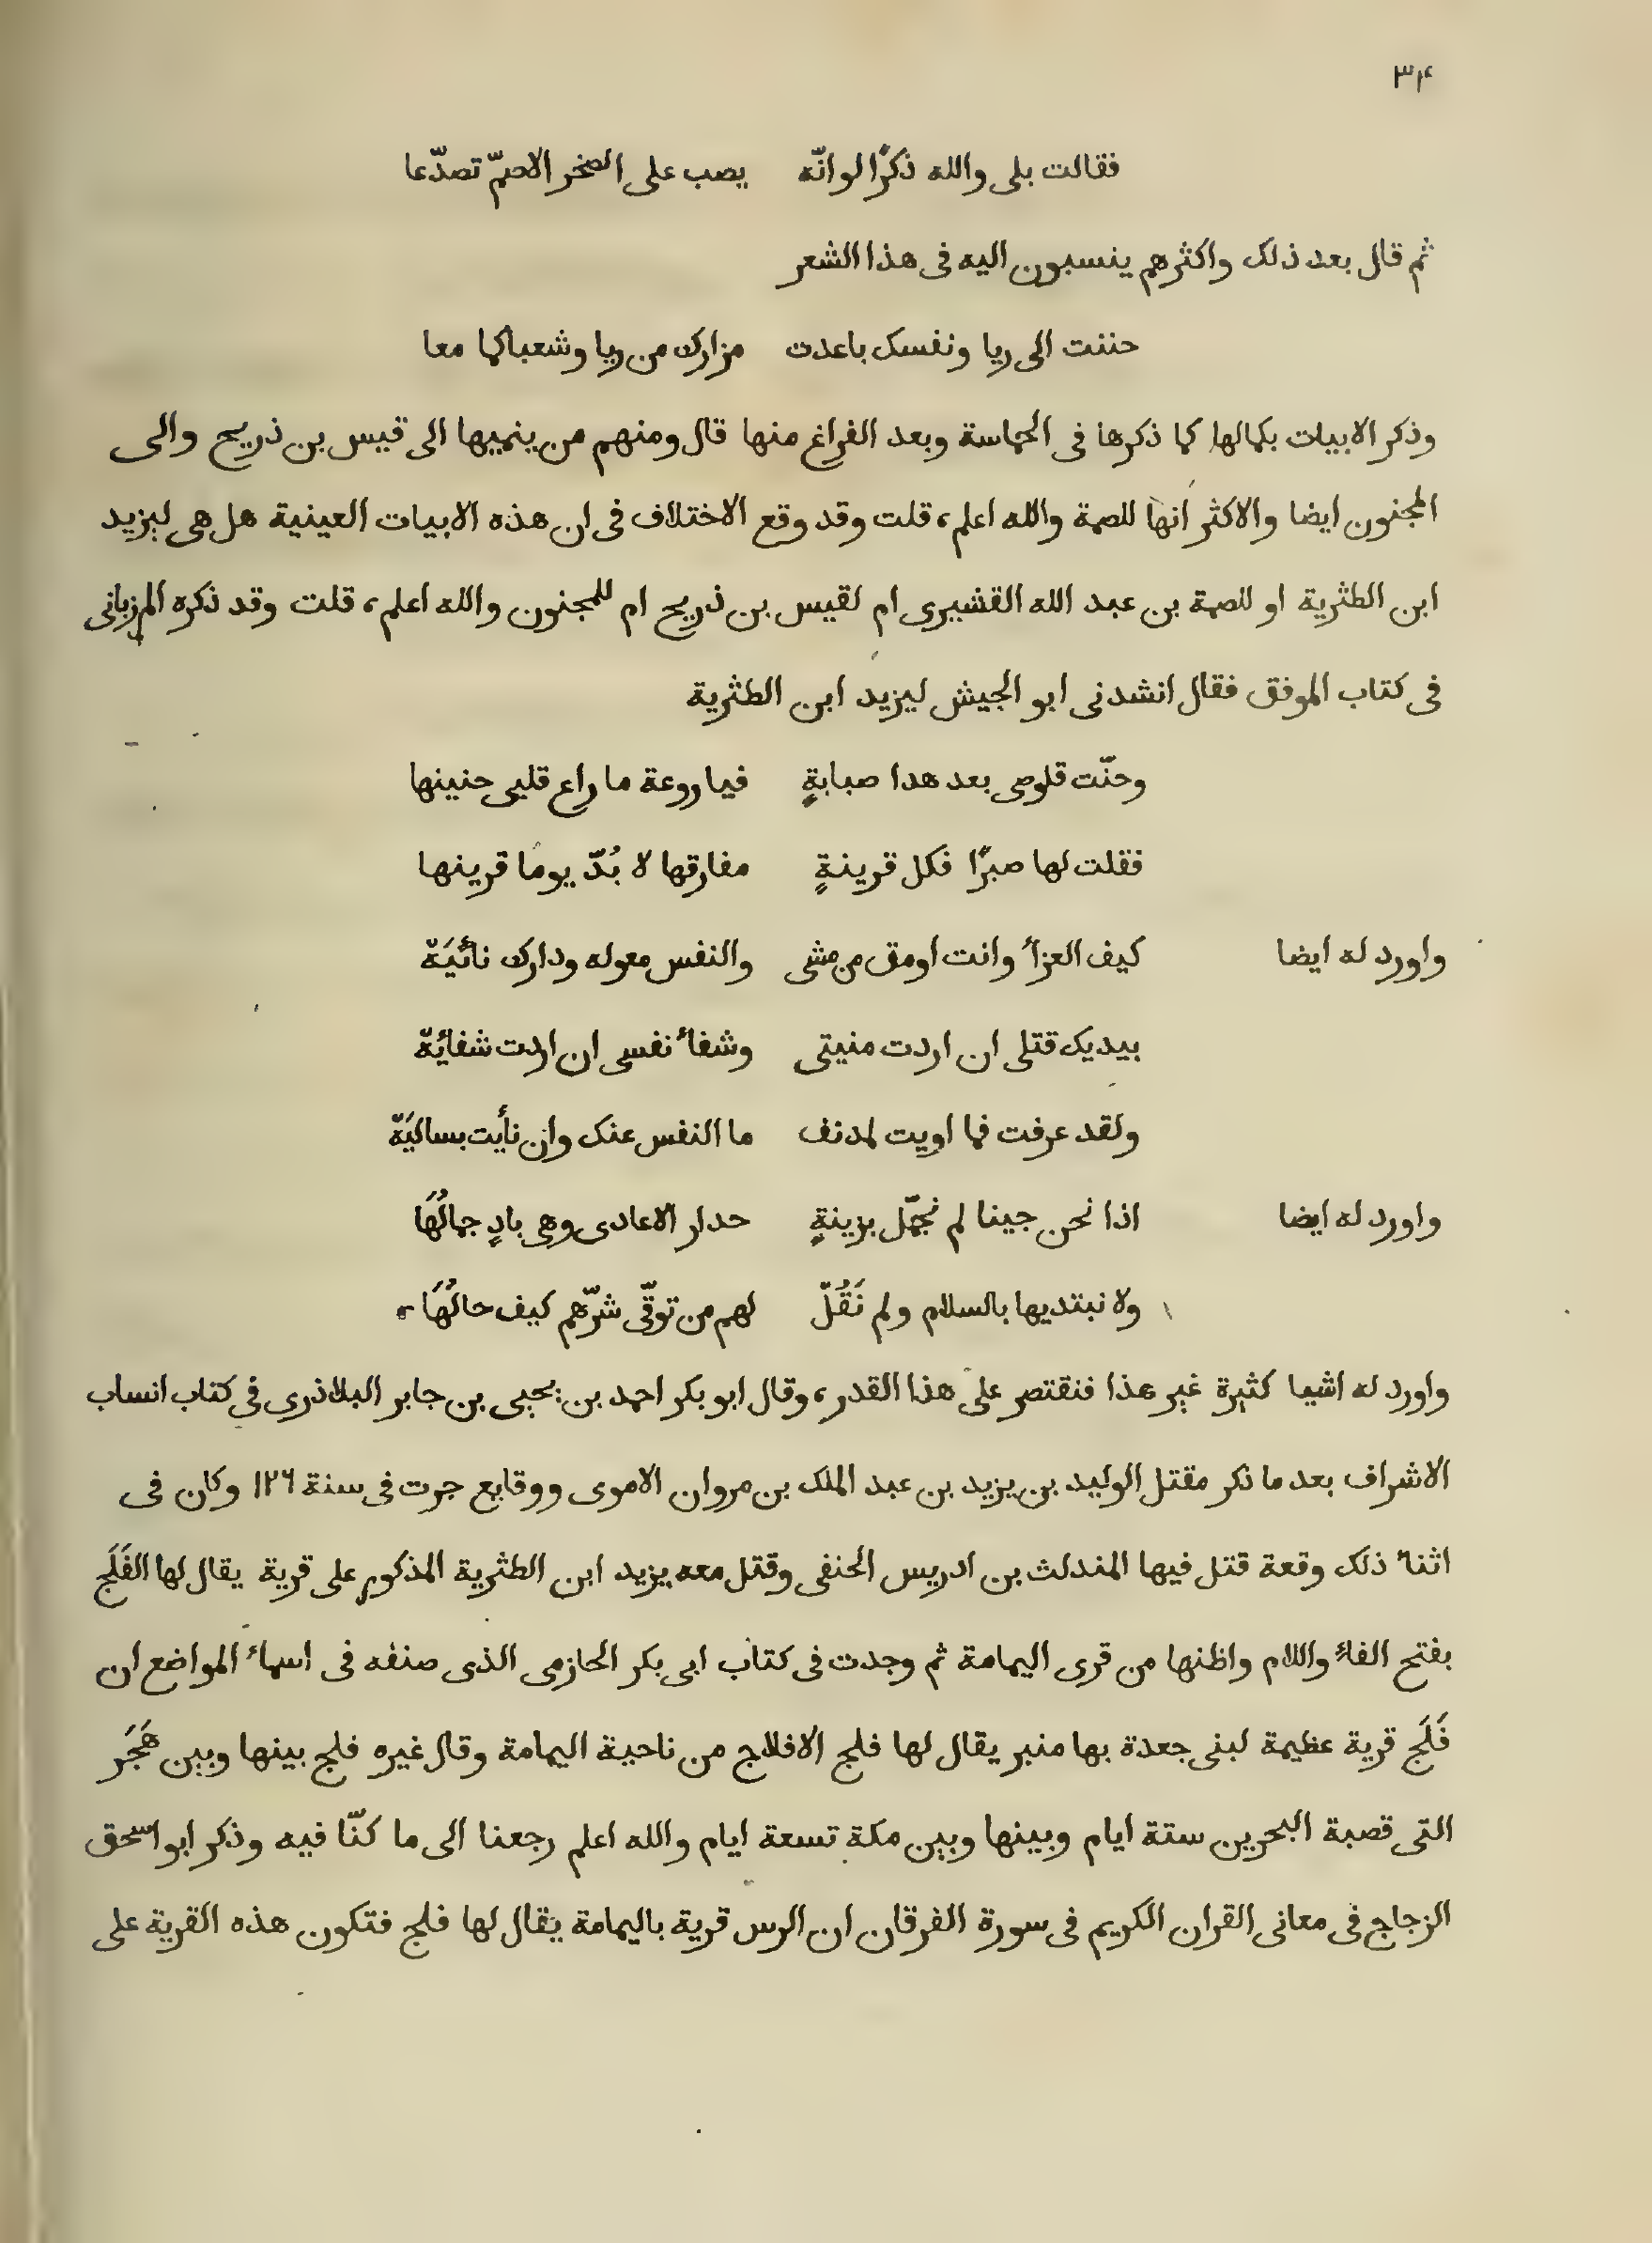 ٣۴
فقالت بلى والله ذكرًا لو انّه يصب على الصخر الاصمّ تصدّعا
ثم قال بعد ذلك واكثرهم ينسبون اليه فى هذا الشعر
حننت الى ريا ونفسك باعدت مزارك من ريا وشعباكما معا
وذكر الابيات بكمالها كما ذكرها فى الحماسة وبعد الفراغ منها قال ومنهم من ينميها الى قيس بن ذريح والى
المجنون ايضا والاكثر انها للصمة والله اعلم، قلت وقد وقع الاختلاف فى ان هذه الابيات العينية هل هى ليزيد
ابن الطثرية او للصمة بن عبد الله القشيرى ام لقيس بن ذريح ام للمجنون والله اعلم، قلت وقد ذكره المرزبانى
فى كتاب الموفق فقال انشدنى ابو الجيش ليزيد ابن الطثرية
وحنّت قلوصى بعد هدا صبابةٍ فيا روعة ما راع قلبى حنينها
فقلت لها صبرًا فكل قرينةٍ مفارقها لا بُدّ يوما قرينها
واورد له ايضا كيف العزأ وانت اومق من مشى والنفس معوله ودارك نائيَة
بيديك قتلى ان اردت منيتى وشفأ نفسى ان اردت شفائيَة
ولقد عرفت فما اويت لمدنف ما النفس عنك وان نأيت بساليَة
واورد له ايضا اذا نحن جينا لم نجمّل بزينةٍ حدار الاعادى وهى بادٍ جمالُهَا
ولا نبتديها بالسلام ولم نَقُلْ لهم من توقّى شرّهم كيف حالُهَا،
واورد له اشيا كثيرة غير هذا فنقتصر على هذا القدر، وقال ابو بكر احمد بن يحيى بن جابر البلاذرى فى كتاب انساب
الاشراف بعد ما ذكر مقتل الوليد بن يزيد بن عبد الملك بن مروان الاموى ووقايع جرت فى سنة ١٢٦ وكان فى
اثنأ ذلك وقعة قتل فيها المندلث بن ادريس الحنفى وقتل معه يزيد ابن الطثرية المذكور على قرية يقال لها الفَلَج
بفتح الفأ واللام واظنها من قرى اليمامة ثم وجدت فى كتاب ابى بكر الحازمى الذى صنفه فى اسمأ المواضع ان
فَلَج قرية عظيمة لبنى جعدة بها منبر يقال لها فلج الافلاج من ناحية اليمامة وقال غيره فلج بينها وبين هَجَر
التى قصبة البحرين ستة ايام وبينها وبين مكة تسعة ايام والله اعلم رجعنا الى ما كنّا فيه وذكر ابو اسحق
الزجاج فى معانى القران الكريم فى سورة الفرقان ان الرس قرية باليمامة يقال لها فلج فتكون هذه القرية على